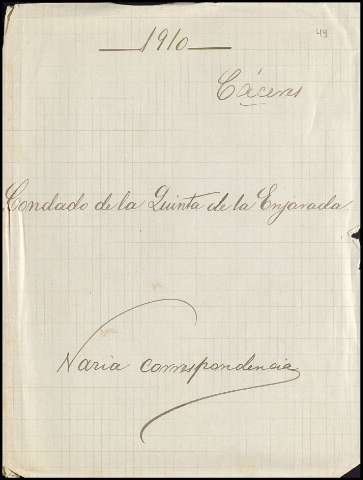 1910
49
Cáceres
Condado de la Quinta de la Enjarada.
Varia correspondencia